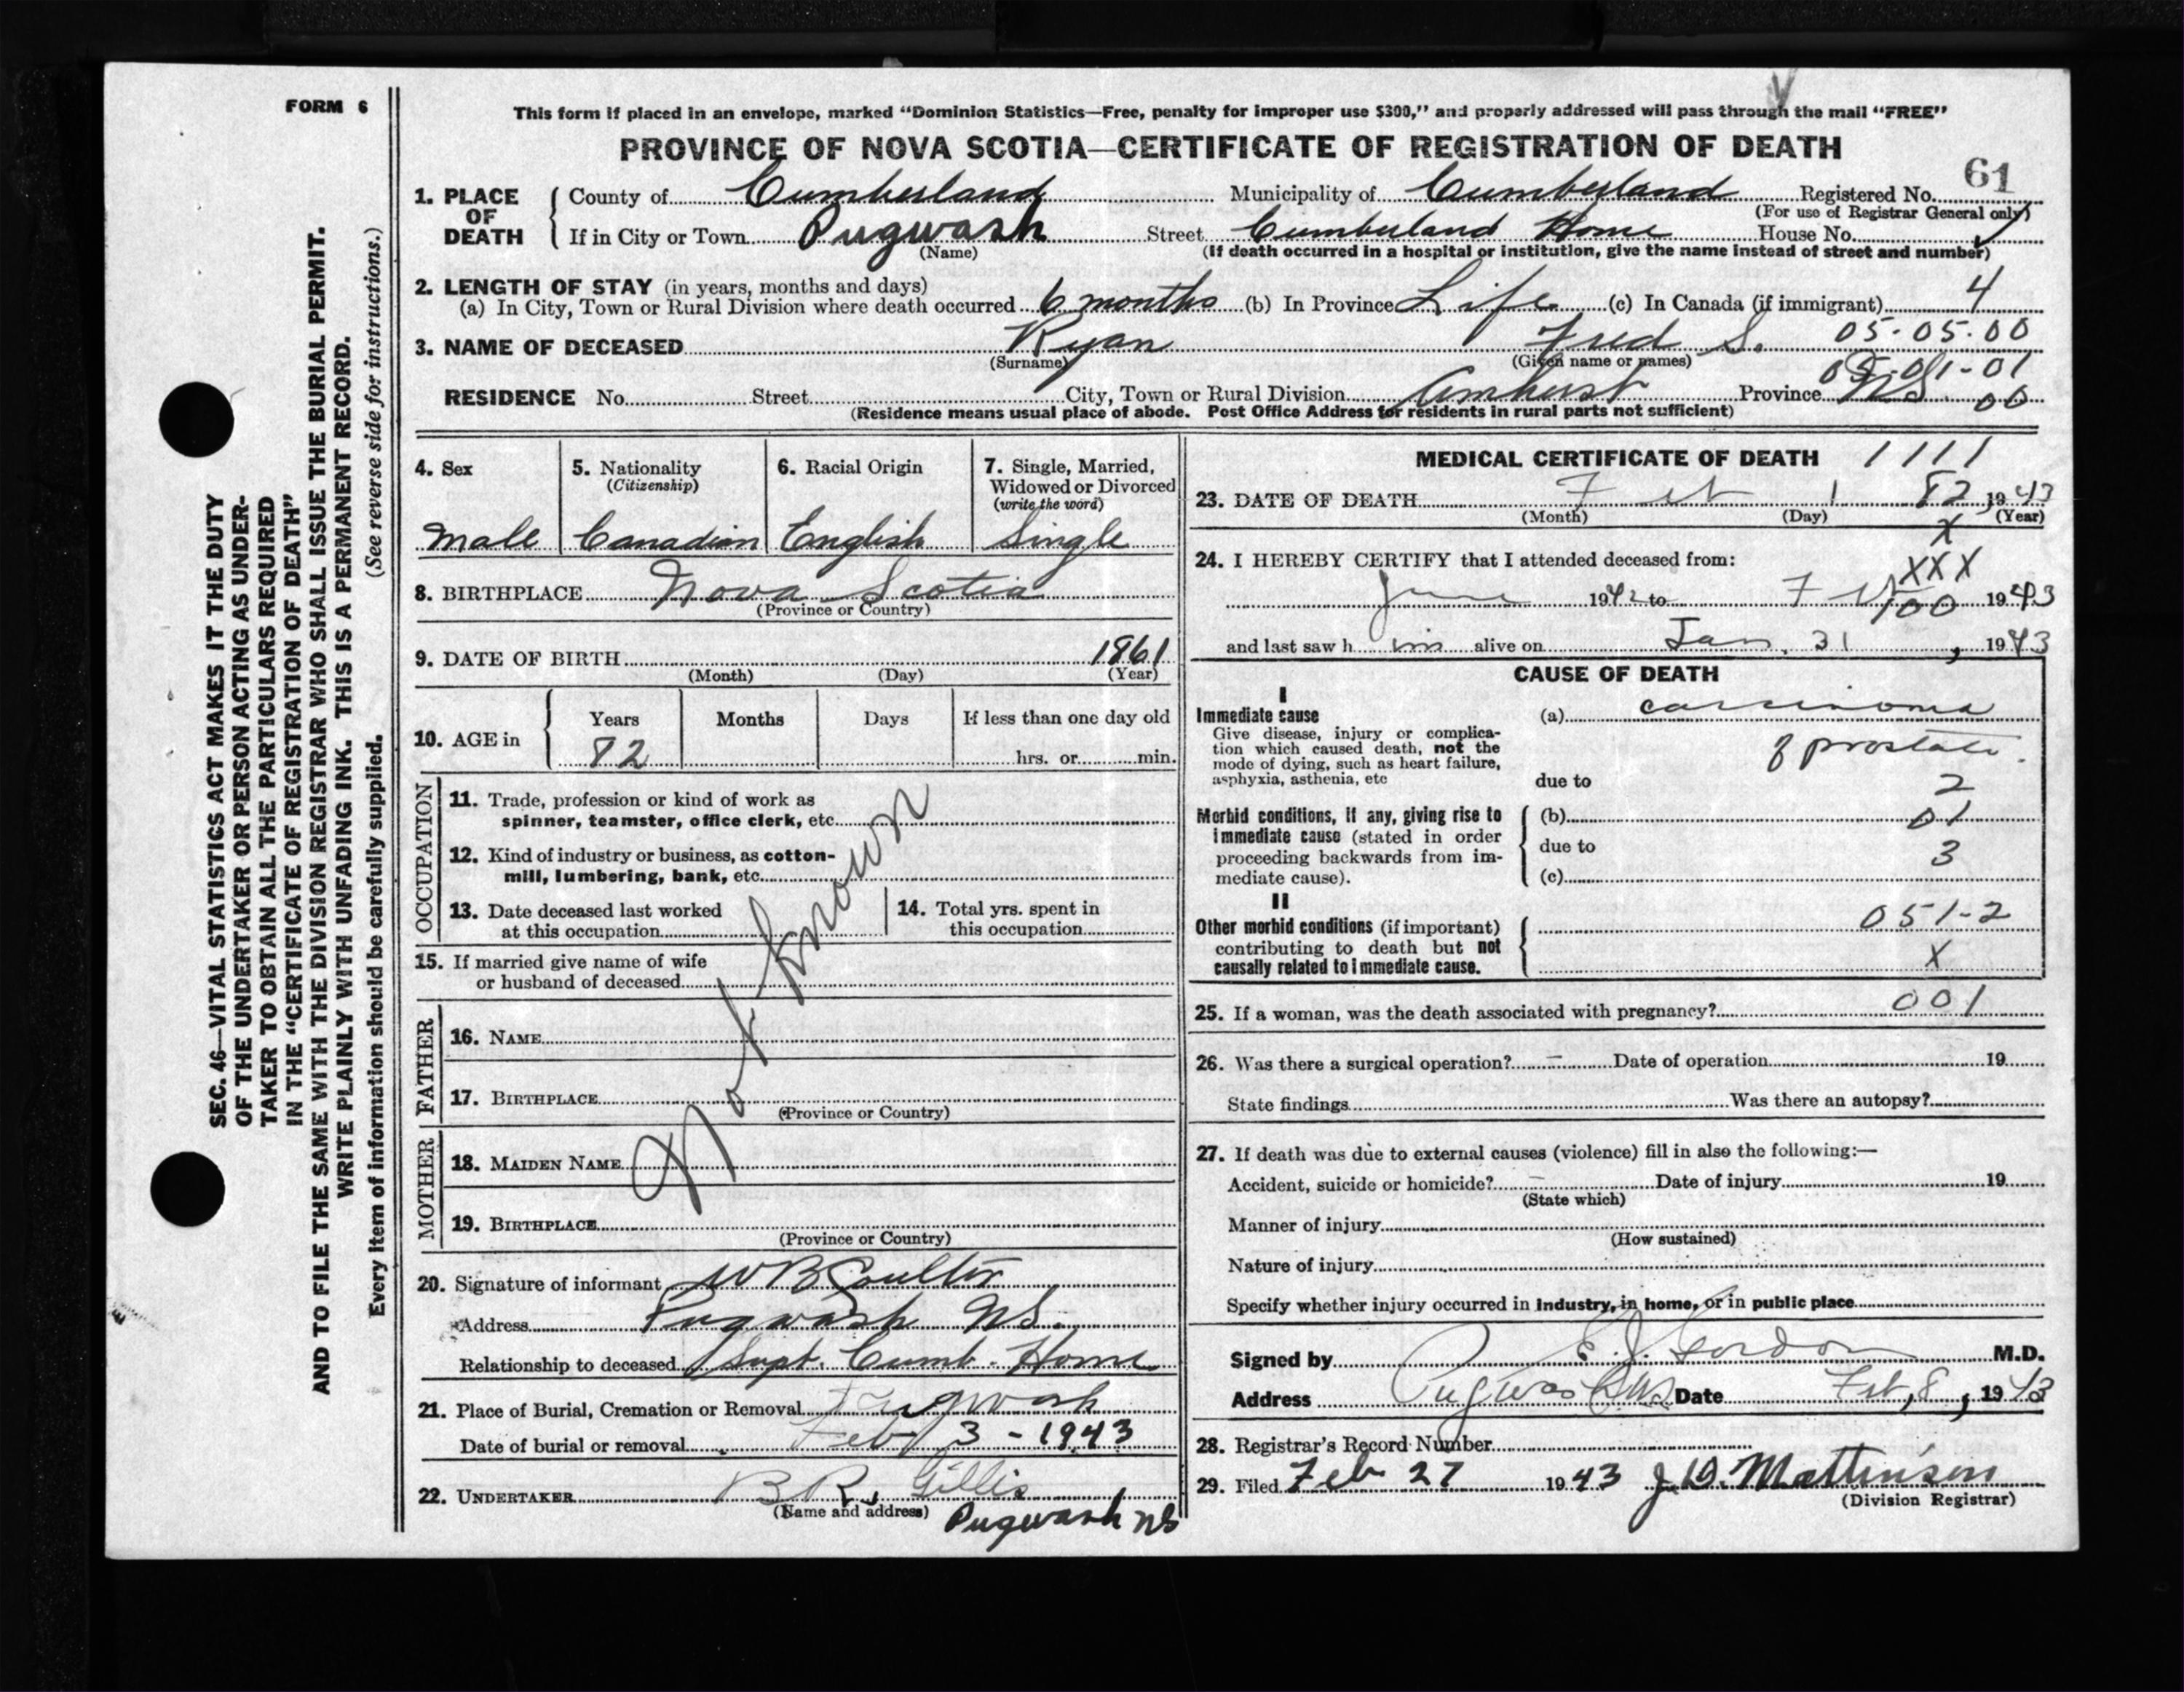 FORM 6
This form if placed in an envelope, marked "Dominion Statistics—Free, penalty for improper use $300," and properly addressed will pass through the mail "FREE"
PROVINCE OF NOVA SCOTIA—CERTIFICATE OF REGISTRATION OF DEATH
61
1. PLACE OF DEATH
County of Cumberland Municipality of Cumberland Registered No.
(For use of Registrar General only)
If in City or Town Pugwash Street Cumberland Home House No.
(Name) (If death occurred in a hospital or institution, give the name instead of street and number)
2. LENGTH OF STAY (in years, months and days)
(a) In City, Town or Rural Division where death occurred 6 months (b) In Province Life (c) In Canada (if immigrant) 4
05-05-00
3. NAME OF DECEASED Ryan Fred S.
(Surname) (Given name or names)
05-01-01
RESIDENCE No. Street City, Town or Rural Division Amherst Province NS 00
(Residence means usual place of abode. Post Office Address for residents in rural parts not sufficient)
4. Sex
Male
5. Nationality
(Citizenship)
Canadian
6. Racial Origin
English
7. Single, Married,
Widowed or Divorced
(write the word)
Single
8. BIRTHPLACE Nova Scotia
(Province or Country)
9. DATE OF BIRTH 1861
(Month) (Day) (Year)
10. AGE in
Years Months Days If less than one day old
82 hrs. or min.
OCCUPATION
11. Trade, profession or kind of work as
spinner, teamster, office clerk, etc.
12. Kind of industry or business, as cotton-
mill, lumbering, bank, etc.
13. Date deceased last worked
at this occupation
14. Total yrs. spent in
this occupation
15. If married give name of wife
or husband of deceased
Not Known
FATHER
16. NAME
17. BIRTHPLACE
(Province or Country)
MOTHER
18. MAIDEN NAME
19. BIRTHPLACE
(Province or Country)
20. Signature of informant W B Coulter
Address Pugwash NS.
Relationship to deceased Supt. Cumb. Home
21. Place of Burial, Cremation or Removal Pugwash
Date of burial or removal Feb 3 - 1943
22. UNDERTAKER B R. Gillis
(Name and address) Pugwash NS
MEDICAL CERTIFICATE OF DEATH 1111
23. DATE OF DEATH Feb 1 82 1943
(Month) (Day) (Year)
X
24. I HEREBY CERTIFY that I attended deceased from:
XXX
June 1942 to Feb 100 1943
and last saw him alive on Jan. 31, 1943
CAUSE OF DEATH
I
Immediate cause
Give disease, injury or complica-
tion which caused death, not the
mode of dying, such as heart failure,
asphyxia, asthenia, etc
(a) carcinoma
of prostate.
due to 2
Morbid conditions, if any, giving rise to
immediate cause (stated in order
proceeding backwards from im-
mediate cause).
(b) 01
due to 3
(c)
II
Other morbid conditions (if important)
contributing to death but not
causally related to immediate cause.
051-2
X
25. If a woman, was the death associated with pregnancy? 001
26. Was there a surgical operation? – Date of operation 19
State findings Was there an autopsy?
27. If death was due to external causes (violence) fill in also the following:—
Accident, suicide or homicide? – Date of injury 19
(State which)
Manner of injury
(How sustained)
Nature of injury
Specify whether injury occurred in industry, in home, or in public place
Signed by E. J. Gordon M.D.
Address Pugwash NS Date Feb, 8, 1943
28. Registrar's Record Number
29. Filed Feb 27 1943 J. D. Mattinson
(Division Registrar)
SEC. 46—VITAL STATISTICS ACT MAKES IT THE DUTY
OF THE UNDERTAKER OR PERSON ACTING AS UNDER-
TAKER TO OBTAIN ALL THE PARTICULARS REQUIRED
IN THE "CERTIFICATE OF REGISTRATION OF DEATH"
AND TO FILE THE SAME WITH THE DIVISION REGISTRAR WHO SHALL ISSUE THE BURIAL PERMIT.
WRITE PLAINLY WITH UNFADING INK. THIS IS A PERMANENT RECORD.
Every item of information should be carefully supplied. (See reverse side for instructions.)